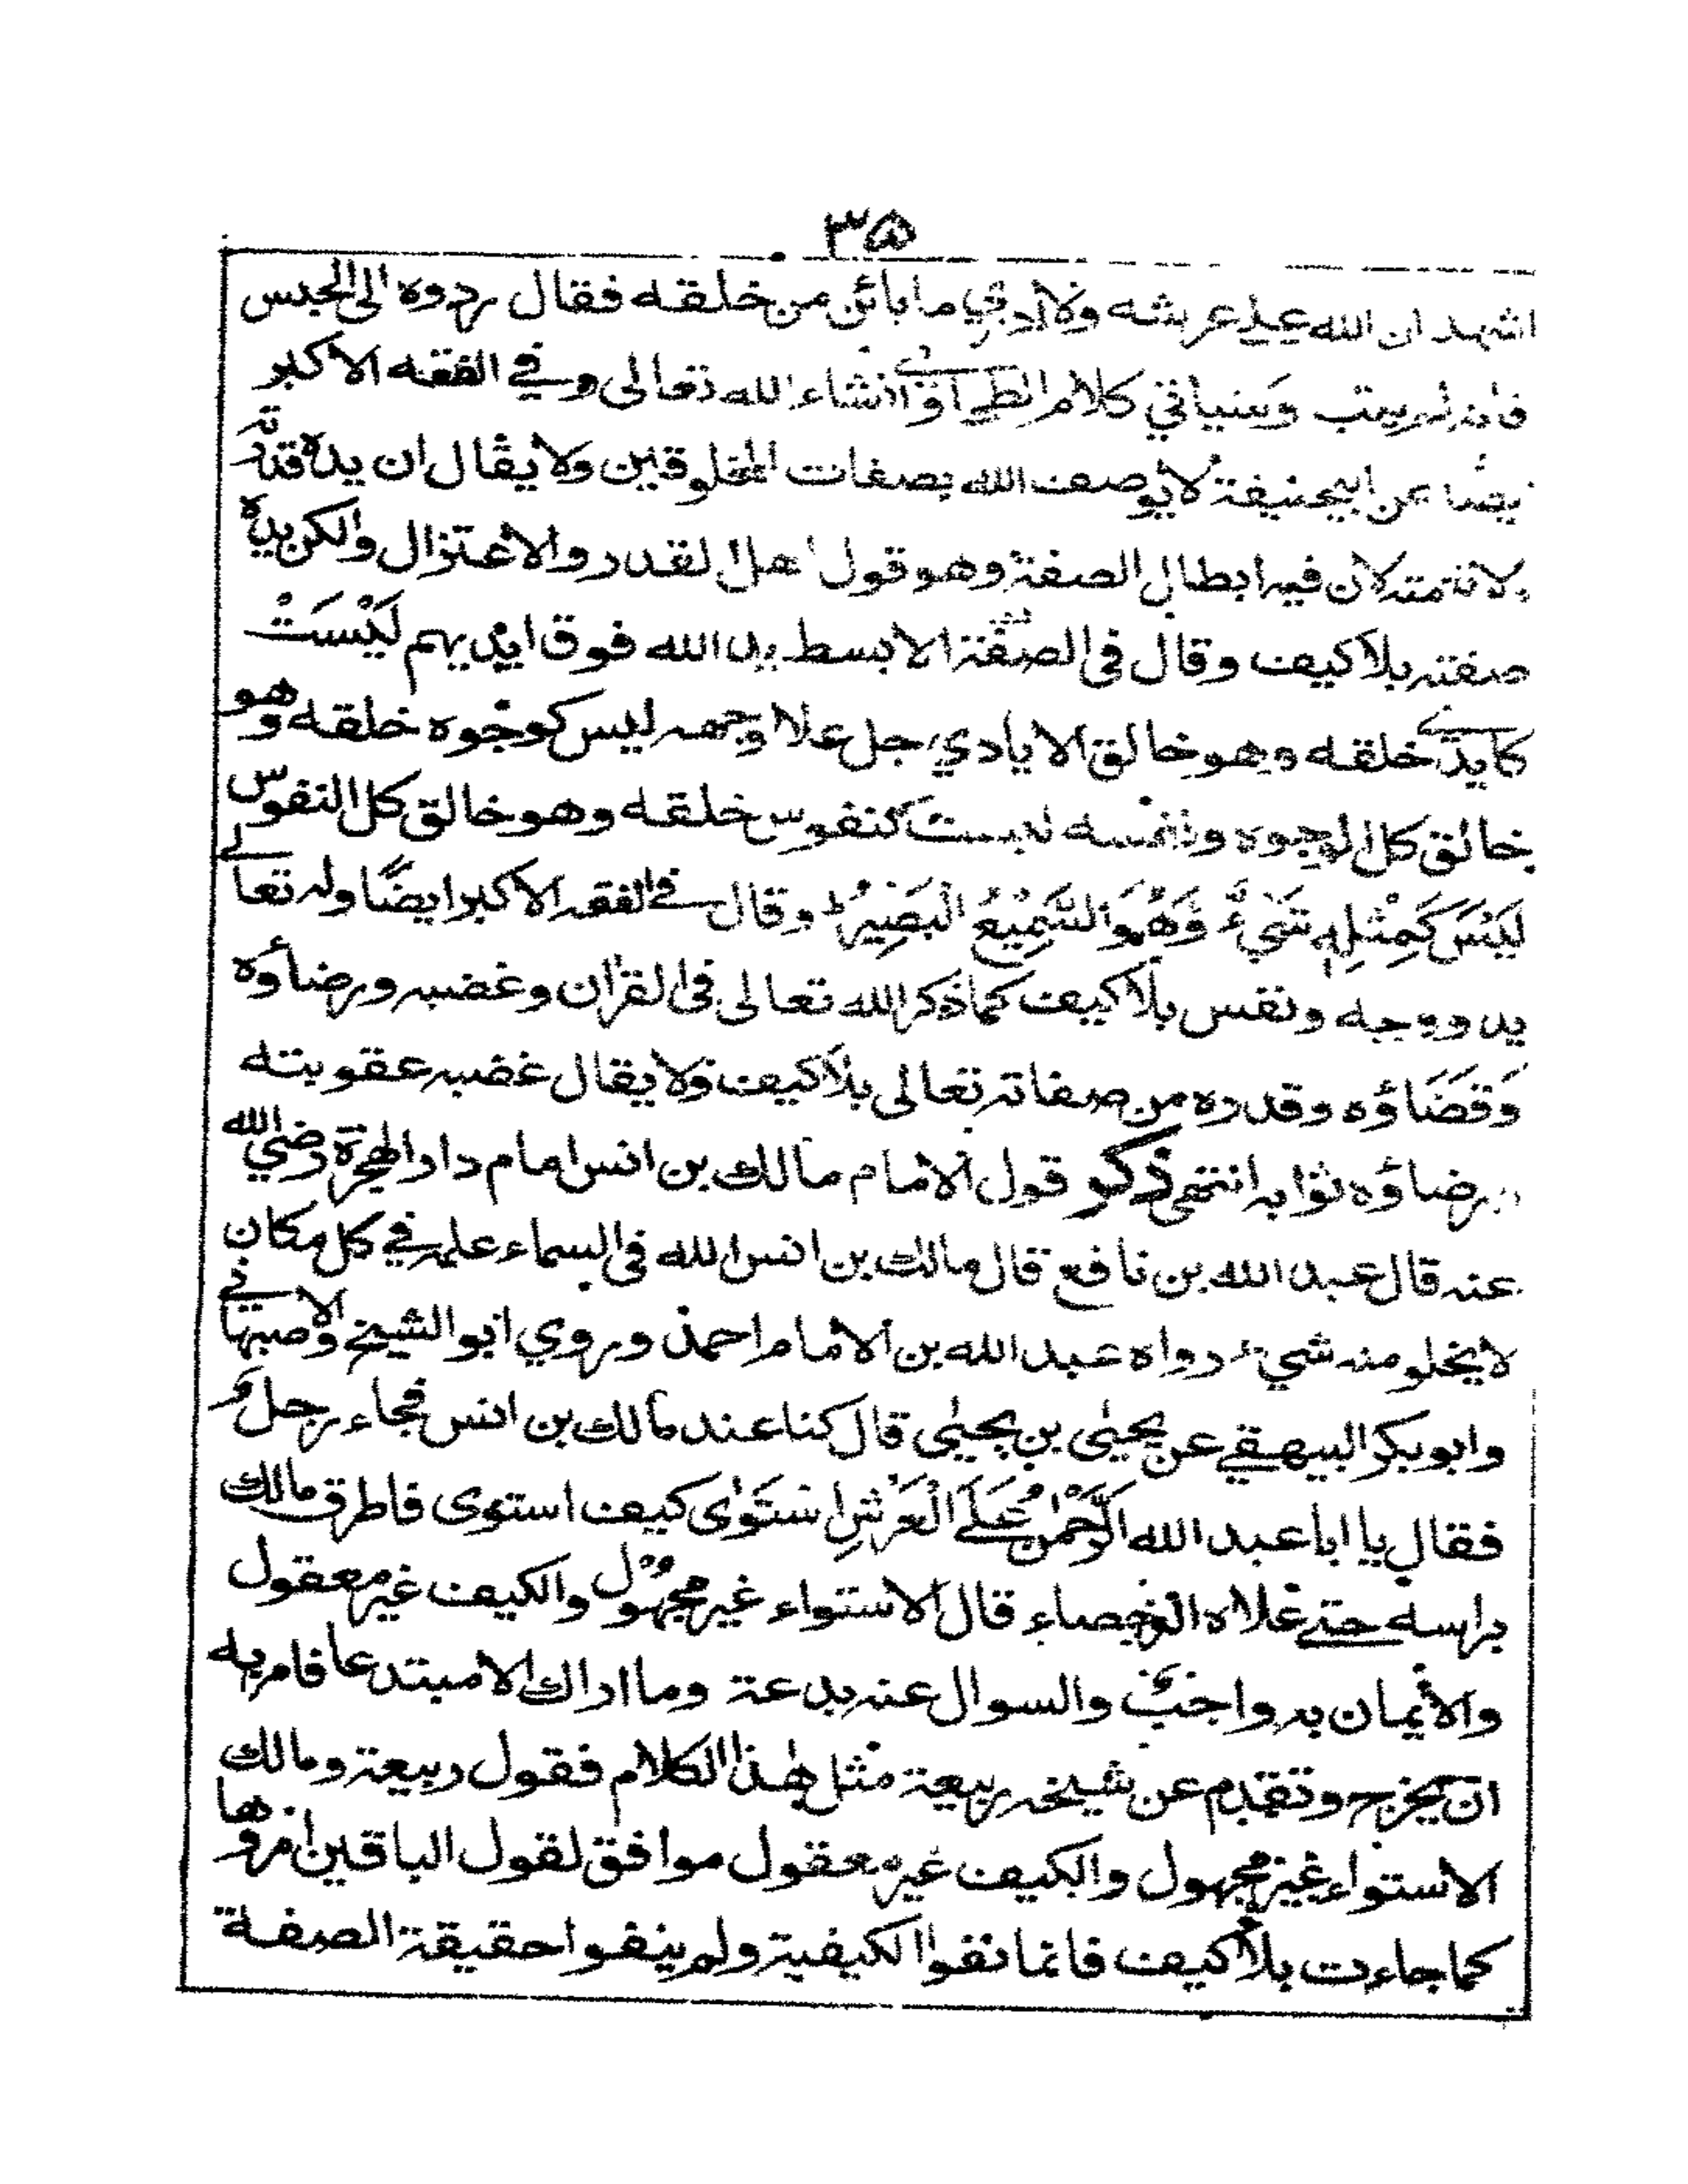 ۳۵
اشهد ان الله علے عرشه ولا ادري ما بائن من خلقه فقال ردوه الى الحبس
فانه لم يتب وسياتي كلام الطحاوے انشاء الله تعالى وفي الفقه الاكبر
ايضا عن ابيحنيفة لا يوصف الله بصفات المخلوقين ولا يقال ان يده قدرته
ولا نعمته لان فيه ابطال الصفة وهو قول اهل القدر والاعتزال ولكن يده
صفته بلا كيف وقال في الصفة الابسط يد الله فوق ايديهم لَيْسَتْ
كايدے خلقه وهو خالق الايادي جل علا وجهه ليس كوجوه خلقه وهو
خالق كل الوجوه ونفسه ليست كنفوس خلقه وهو خالق كل النفوس
لَيْسَ كَمِثْلِهٖ شَيْءٌ وَّهُوَ السَّمِيْعُ الْبَصِيْرُ ط وقال في الفقه الاكبر ايضًا وله تعالے
يد ووجه ونفس بلا كيف كما ذكر الله تعالى في القرآن وغضبه ورضاؤه
وَقَضَاؤه وقدره من صفاته تعالى بلا كيف ولا يقال غضبه عقوبته
ورضاؤه ثوابه انتهى ذكر قول الامام مالك بن انس امام دار الهجرة رضي الله
عنه قال عبد الله بن نافع قال مالك بن انس الله في السماء علمه في كل مكان
لا يخلو منه شيء رواه عبد الله بن الامام احمد وروي ابو الشيخ الاصبهانے
وابو بكر البيهقے عن يحيٰى بن يحيٰى قال كنا عند مالك بن انس فجاء رجلٌ
فقال يا ابا عبد الله الرَّحْمٰنُ عَلَے الْعَرْشِ اسْتَوٰى كيف استوى فاطرق مالك
براسه حتے علاه الرحضاء قال الاستواء غير مجهول والكيف غير معقول
والايمان به واجبٌ والسوال عنه بدعة وما اراك الا مبتدعا فامر به
ان يخرج وتقدم عن شيخه ربيعة مثل هٰذا الكلام فقول ربيعة ومالك
الاستواء غير مجهول والكيف غير معقول موافق لقول الباقين امروها
كما جاءت بلا كيف فانما نفوا الكيفية ولم ينفوا حقيقة الصفة